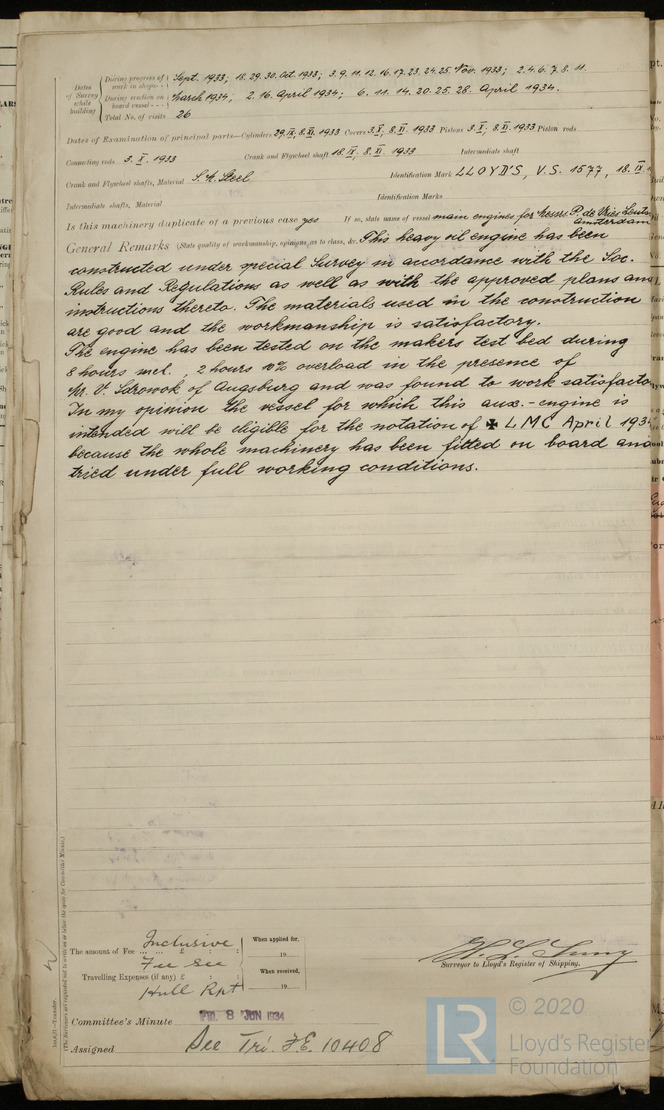 Dates of Survey while building
During progress of work in shops - - Sept. 1933; 18.29.30. Oct. 1933; 3.9.11.12.16.17.23.24.25. Nov. 1933; 2.4.6.7.8.11.
During erection on board vessel - - - March 1934, 2.16. April 1934; 6.11.14.20.25.28. April 1934.
Total No. of visits 26
Dates of Examination of principal parts—Cylinders 29.IX, 8.XI. 1933 Covers 3.X, 8.XI. 1933 Pistons 3.X, 8.XI. 1933 Piston rods
Connecting rods 3.X. 1933 Crank and Flywheel shaft 18.IX. 8.XI. 1933 Intermediate shaft
Crank and Flywheel shafts, Material S.M. Steel Identification Mark LLOYD'S, V.S. 1577, 18.IX
Intermediate shafts, Material Identification Marks
Is this machinery duplicate of a previous case yes If so, state name of vessel main engines for Messrs. P. de Vries Lents
Amsterdam
General Remarks (State quality of workmanship, opinions as to class, &c. This heavy oil engine has been
constructed under special Survey in accordance with the Soc.
Rules and Regulations as well as with the approved plans and
instructions thereto. The materials used in the construction
are good and the workmanship is satisfactory.
The engine has been tested on the makers test bed during
8 hours incl., 2 hours 10% overload in the presence of
Mr. V. Sdrowok of Augsburg and was found to work satisfacto
In my opinion the vessel for which this aux.-engine is
intended will be eligible for the notation of ✠ LMC April 193
because the whole machinery has been fitted on board and
tried under full working conditions.
(The Surveyors are requested not to write on or below the space for Committee's Minute.)
The amount of Fee ... £ : : Inclusive
Fee see
Travelling Expenses (if any) £ : :
Hull Rpt
When applied for,
19
When received,
19
Surveyor to Lloyd's Register of Shipping.
Committee's Minute FRI. 8 JUN 1934
Assigned See Tri. F.E. 10408
LR
© 2020
Lloyd's Register
Foundation